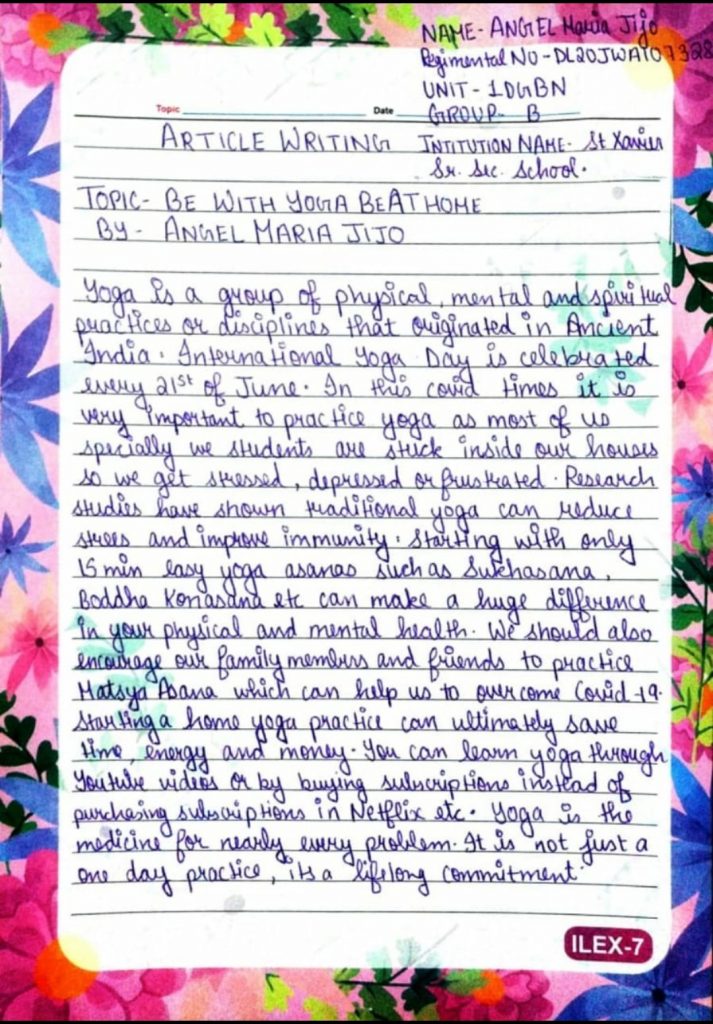 NAME- ANGEL Maria Jijo
Regimental NO - DL20JWA107328
UNIT - 1DGBN
Topic Date GROUP- B
ARTICLE WRITING INTITUTION NAME- St Xavier
Sr. Sec. School.
TOPIC- BE WITH YOGA BE AT HOME
BY - ANGEL MARIA JIJO
Yoga is a group of physical, mental and spiritual
practices or disciplines that originated in Ancient
India. International Yoga Day is celebrated
every 21st of June. In this covid times it is
very important to practice yoga as most of us
specially we students are stuck inside our houses
so we get stressed, depressed or frustrated. Research
studies have shown traditional yoga can reduce
stress and improve immunity. Starting with only
15 min easy yoga asanas such as Sukhasana,
Boddha Konasana etc can make a huge difference
in your physical and mental health. We should also
encourage our family members and friends to practice
Matsya Asana which can help us to overcome Covid-19.
Starting a home yoga practice can ultimately save
time, energy and money. You can learn yoga through
Youtube videos or by buying subscriptions instead of
purchasing subscriptions in Netflix etc. Yoga is the
medicine for nearly every problem. It is not just a
one day practice, its a lifelong commitment.
ILEX-7